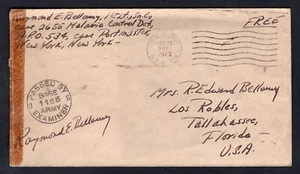 Raymond E. Bellamy, 1st Lt Sn C,
Care 2656 Malaria Control Det,
A.P.O. 534, Care Postmaster,
New York, New York -
FREE
PASSED BY
BASE
1156
ARMY
EXAMINER
Raymond E. Bellamy
Mrs. R Edward Bellamy
Los Robles,
Tallahassee,
Florida -
U.S.A.